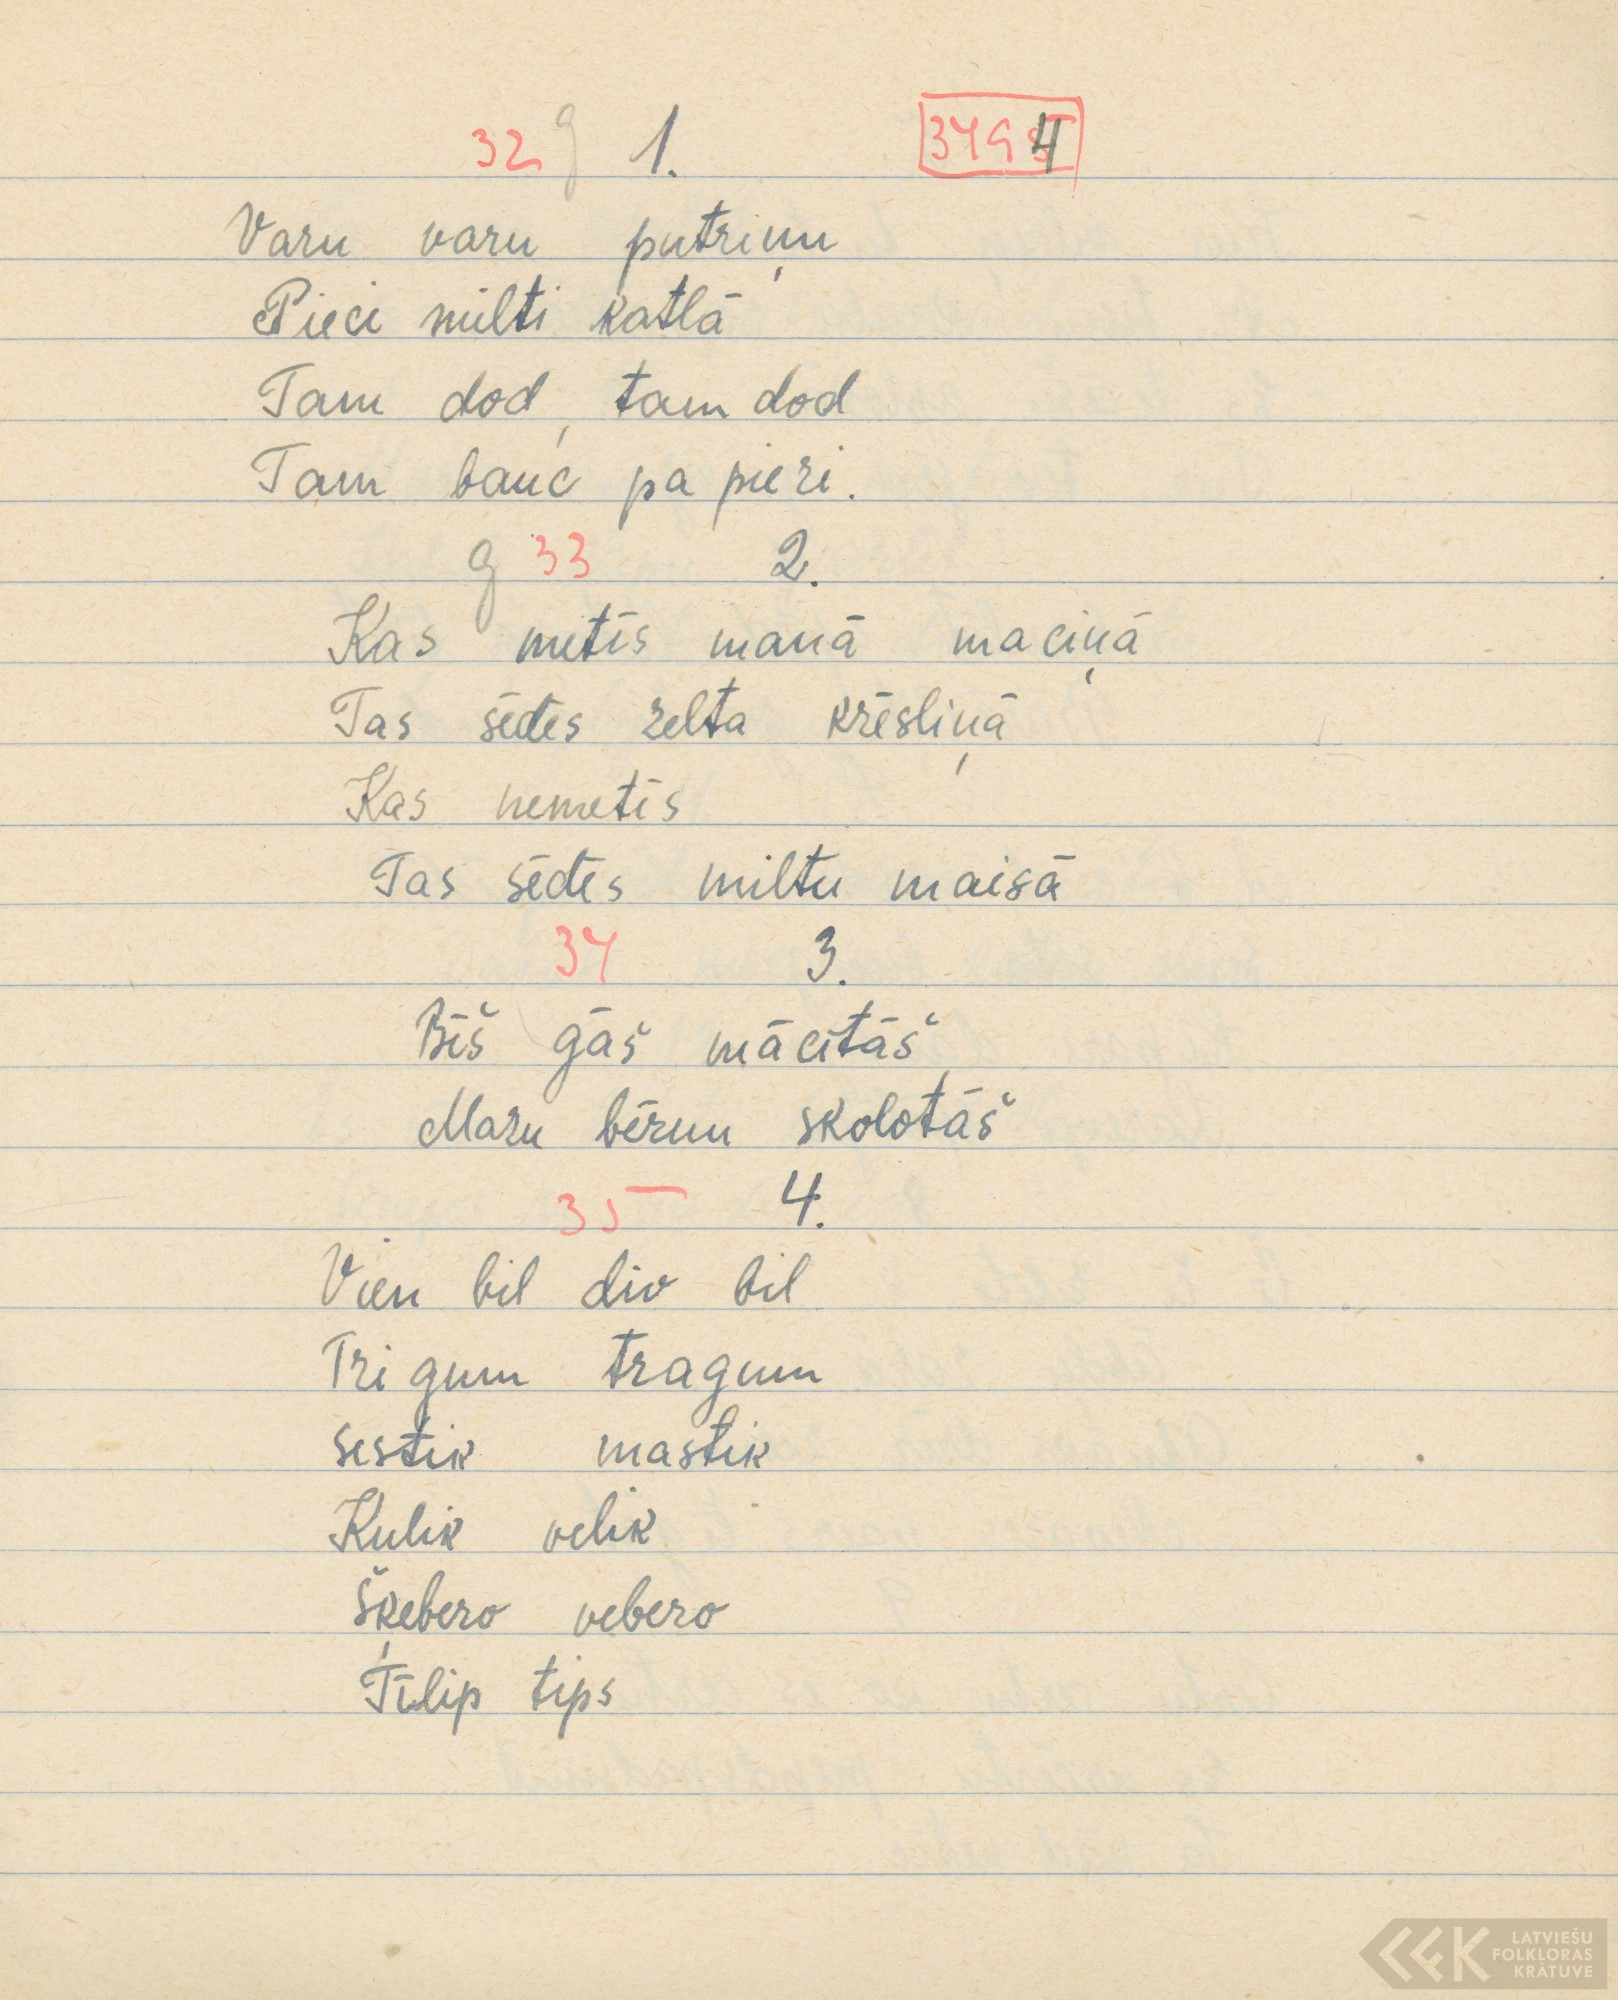 32 g 1.
Varu varu putriņu
Pieci milti katlā
Tam dod, tam dod
Tam bauc pa pieri.
g 33 2.
Kas metīs manā maciņā
Tas sēdēs zelta krēsliņā
Kas nemetīs
Tas sēdēs miltu maisā
34 3.
Bīš gāš mācītāš
Mazu bērnu skolotāš
35 4.
Vien bil div bil
Tri gum tragum
sestik mastik
Kulik velik
Šķebero vebero
Tīlip tips
LATVIEŠU
FOLKLORAS
KRĀTUVE